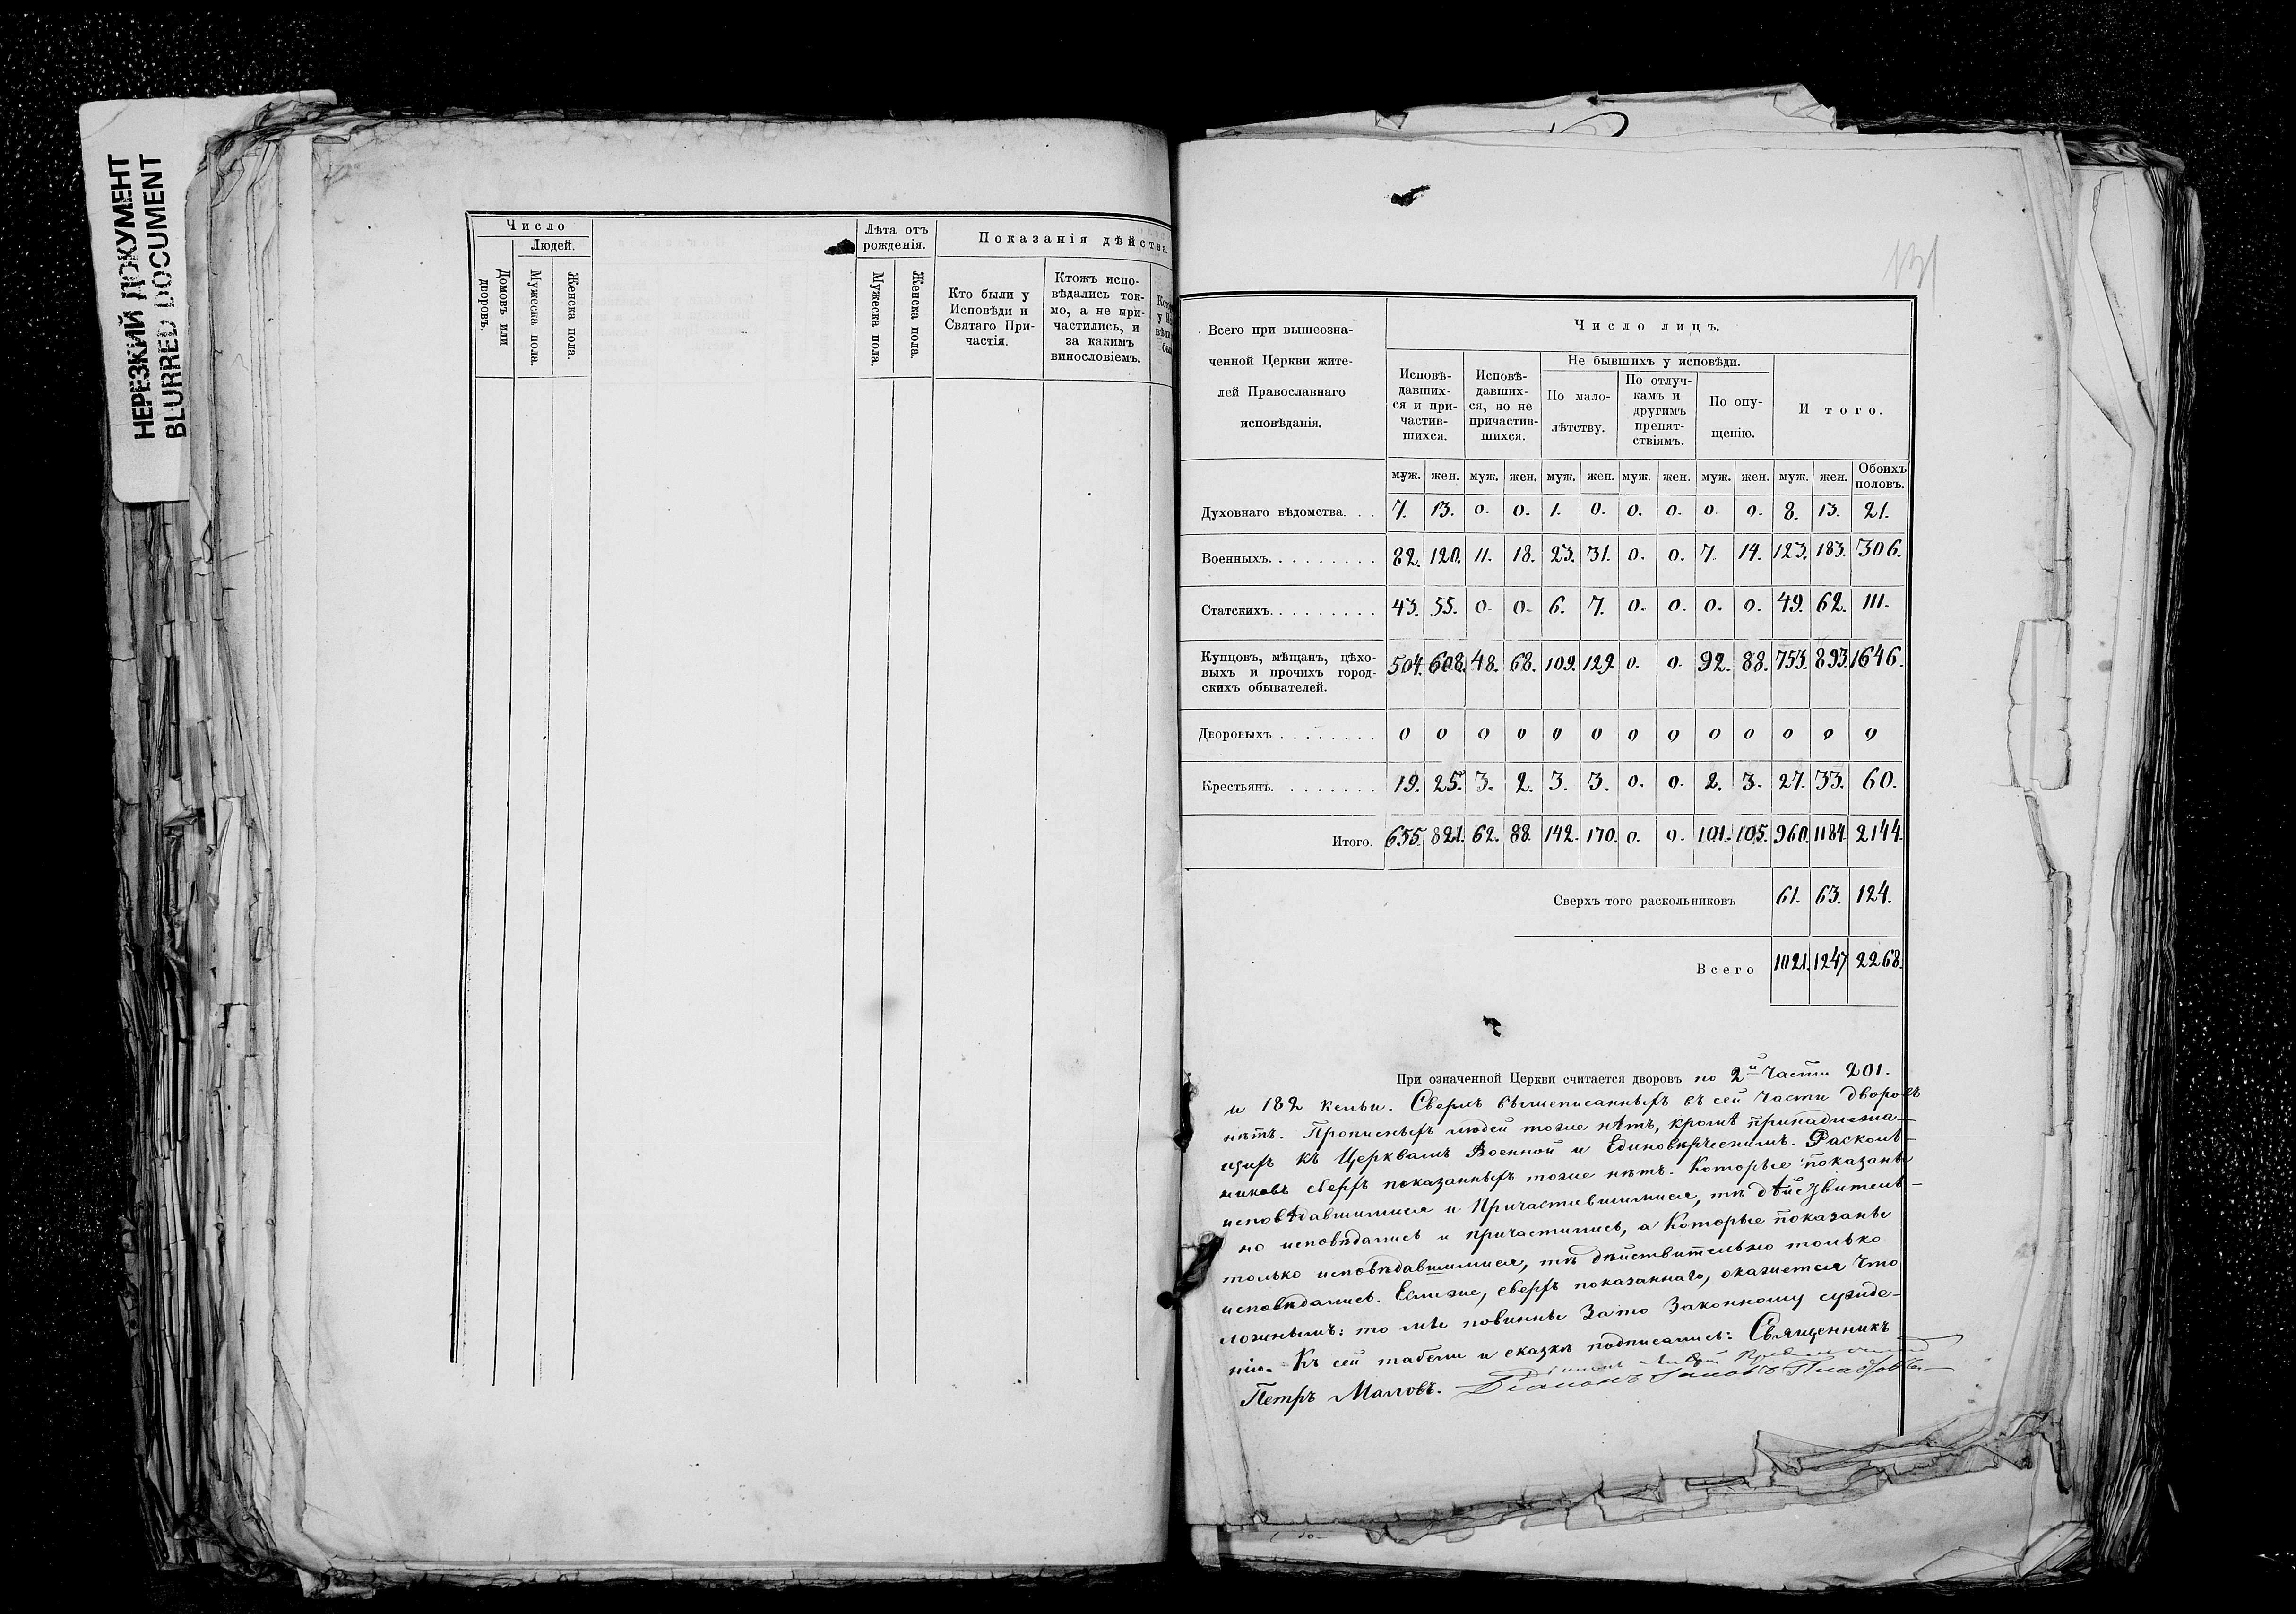 НЕРЕЗКИЙ ДОКУМЕНТ
BLURRED DOCUMENT
Число
Людей.
Домовъ или дворовъ.
Мужеска пола.
Женска пола.
Лѣта отъ рожденія.
Мужеска пола.
Женска пола.
Показанія дѣйства.
Кто были у
Исповѣди и
Святаго При-
частія.
Ктожъ испо-
вѣдались ток-
мо, а не при-
частились, и
за какимъ
винословіемъ.
131
Всего при вышеозна-
ченной Церкви жите-
лей Православнаго
исповѣданія.
Число лицъ.
Исповѣ-
давших-
ся и при-
частив-
шихся.
Исповѣ-
давших-
ся, но не
причастив-
шихся.
Не бывшихъ у исповѣди.
По мало-
лѣтству.
По отлуч-
камъ и
другимъ
препят-
ствіямъ.
По опу-
щенію.
Итого.
муж. жен. муж. жен. муж. жен. муж. жен. муж. жен. муж. жен. Обоихъ половъ.
Духовнаго вѣдомства. . . 7. 13. 0. 0. 1. 0. 0. 0. 0. 0. 8. 13. 21.
Военныхъ. . . . . . . . . 82. 120. 11. 18. 23. 31. 0. 0. 7. 14. 123. 183. 306.
Статскихъ. . . . . . . . . 43. 55. 0. 0. 6. 7. 0. 0. 0. 0. 49. 62. 111.
Купцовъ, мѣщанъ, цѣхо-
выхъ и прочихъ город-
скихъ обывателей.
504. 608. 48. 68. 109. 129. 0. 0. 92. 88. 753. 893. 1646.
Дворовыхъ . . . . . . . . 0 0 0 0 0 0 0 0 0 0 0 0 0
Крестьянъ. . . . . . . . 19. 25. 3. 2. 3. 3. 0. 0. 2. 3. 27. 33. 60.
Итого. 655. 821. 62. 88. 142. 170. 0. 0. 101. 105. 960. 1184. 2144.
Сверхъ того раскольниковъ 61. 63. 124.
Всего 1021. 1247 2268.
При означенной Церкви считается дворовъ по 2й Части 201.
и 182 кельи. Сверхъ вышеписанныхъ въ сей Части дворовъ
нѣтъ. Прописныхъ людей тоже нѣтъ, кромѣ принадлежа-
щихъ къ Церквамъ Военной и Единовѣрческимъ. Расколь-
никовъ сверхъ показанныхъ тоже нѣтъ. Которые показаны
исповѣдавшимися и Причастившимися, тѣ дѣйствитель-
но исповѣдались и причастились, а Которые показаны
только исповѣдавшимися, тѣ дѣйствительно только
исповѣдались. Еслиже, сверхъ показаннаго, окажется Что
ложнымъ: то мы повинны За то Законному сужде-
нію. Къ сей табели и сказкѣ подписались: Священникъ
Петръ Маловъ.
Діаконъ